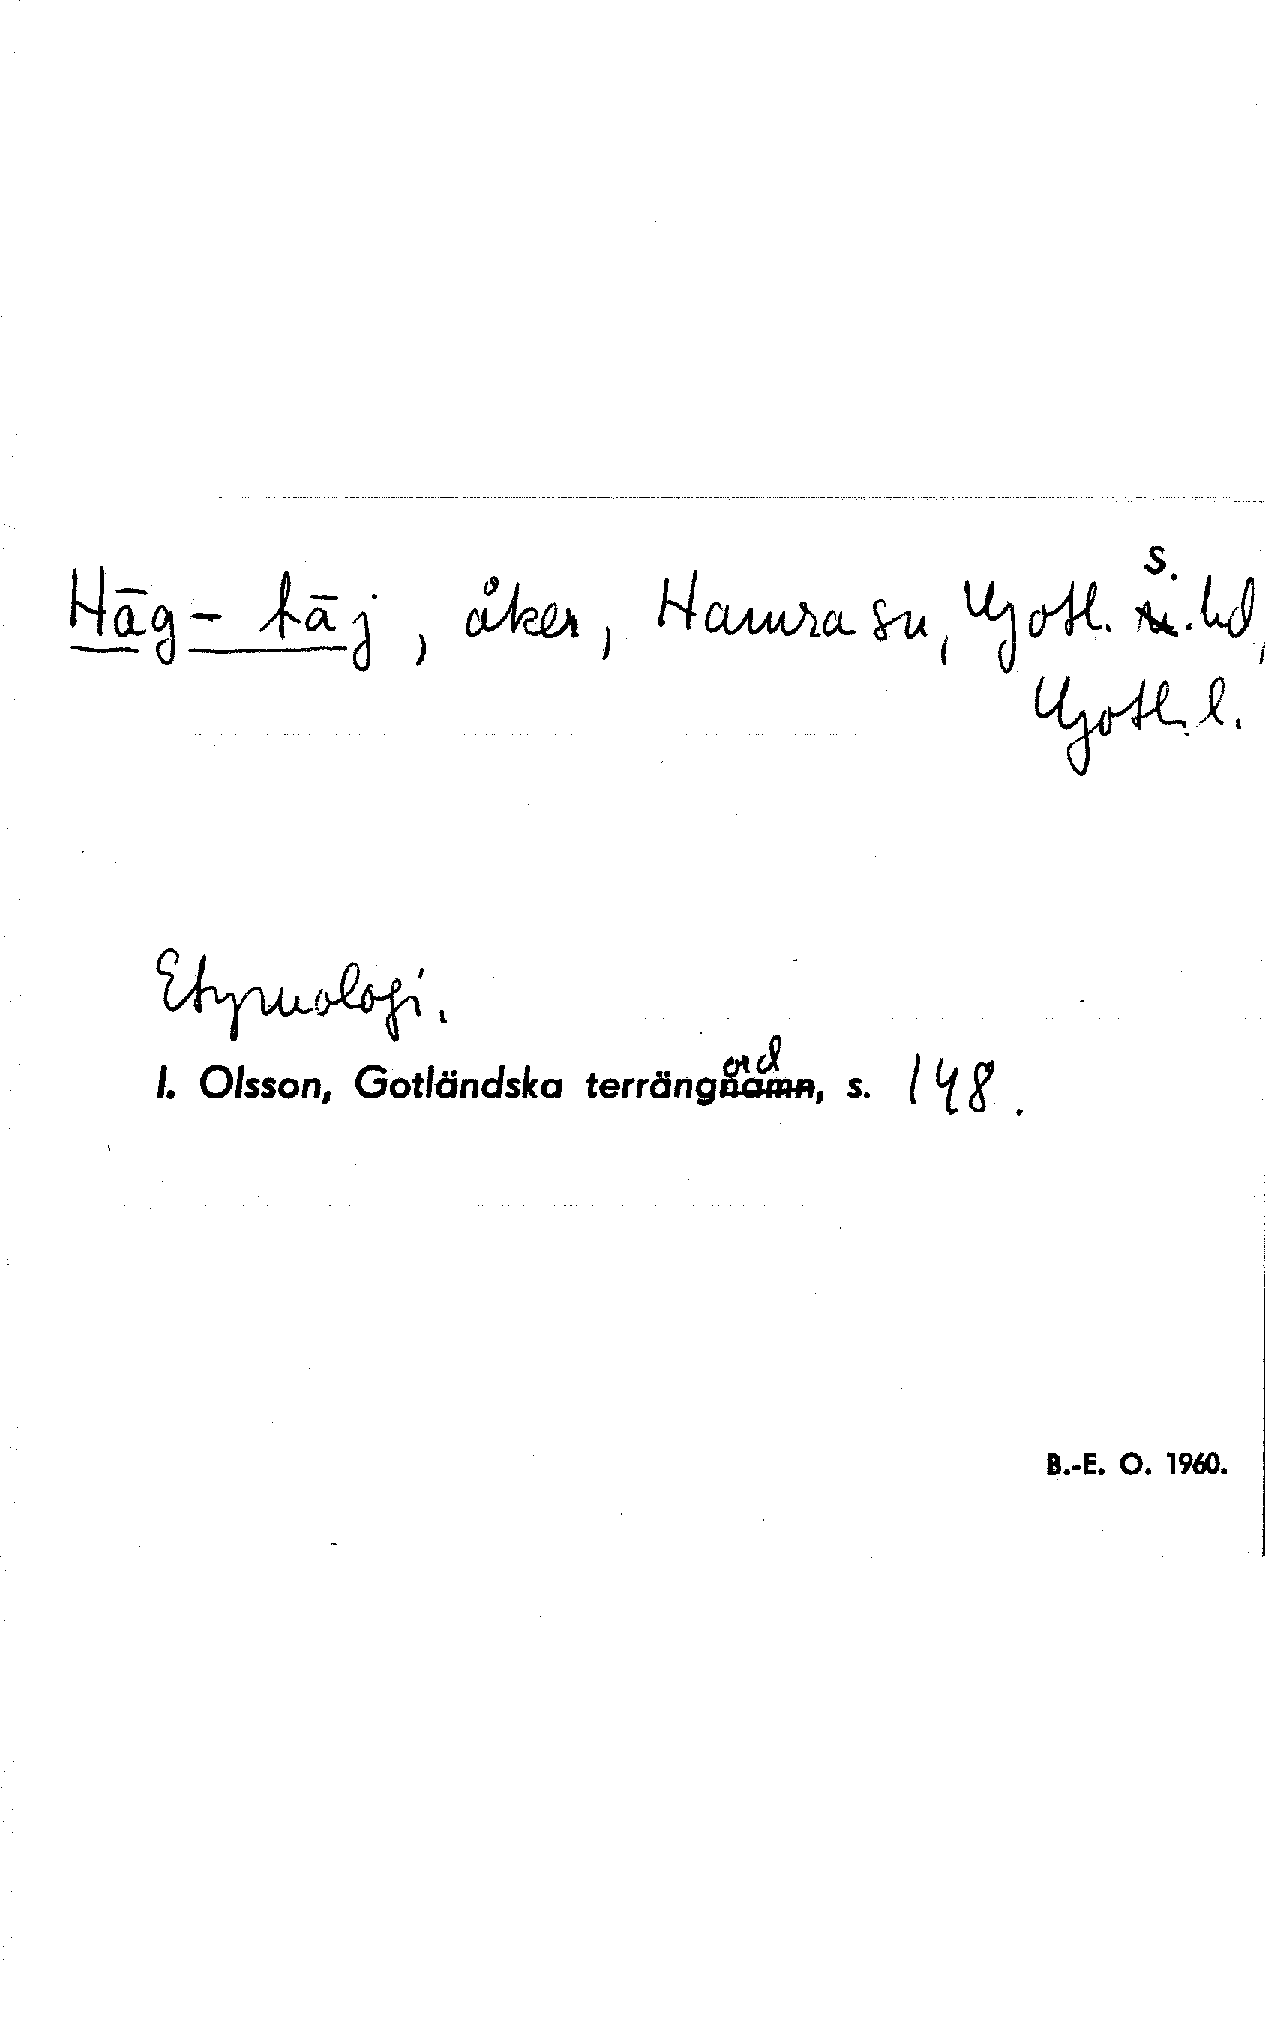 Hāg-tāj, åker, Hamra sn, Gotl. s. hd,
Gotl. l.
Etymologi.
I. Olsson, Gotländska terrängord, s. 148.
B.-E. O. 1960.